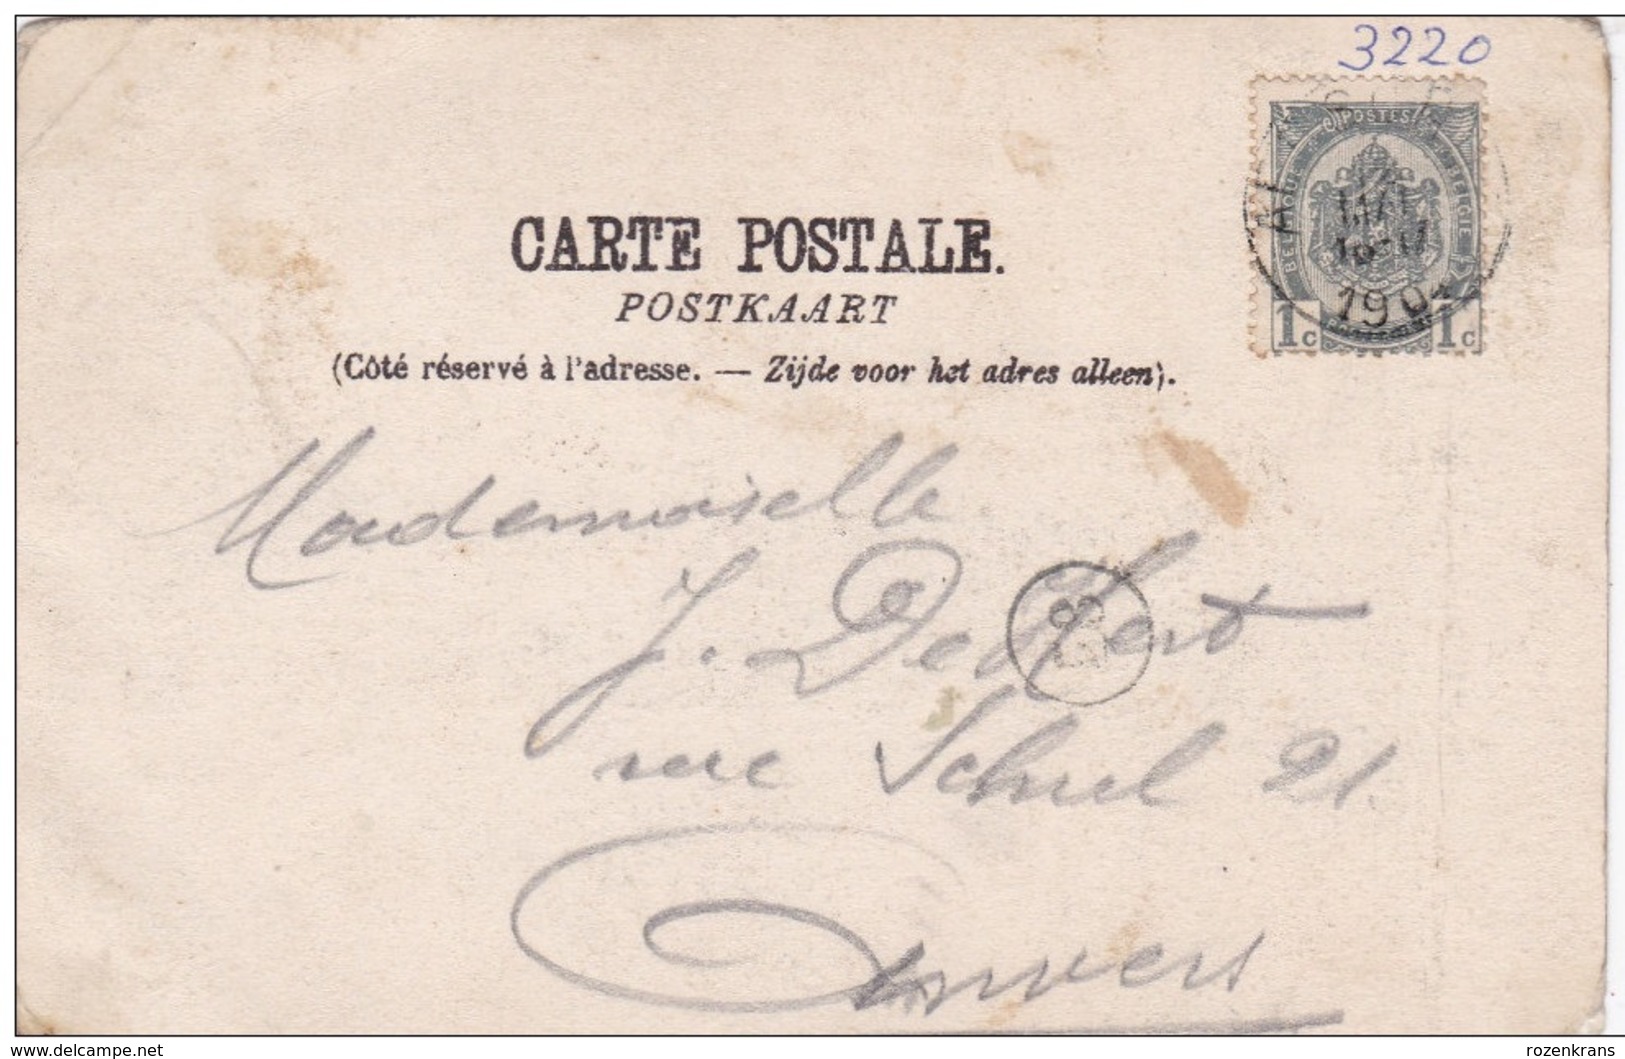 3220
POSTES
BELGIQUE BELGIE
MAI
190
1c 1c
CARTE POSTALE.
POSTKAART
(Côté réservé à l'adresse. — Zijde voor het adres alleen).
Mademoiselle
J. De
rue Schul 21.
Anvers
www.delcampe.net
rozenkrans